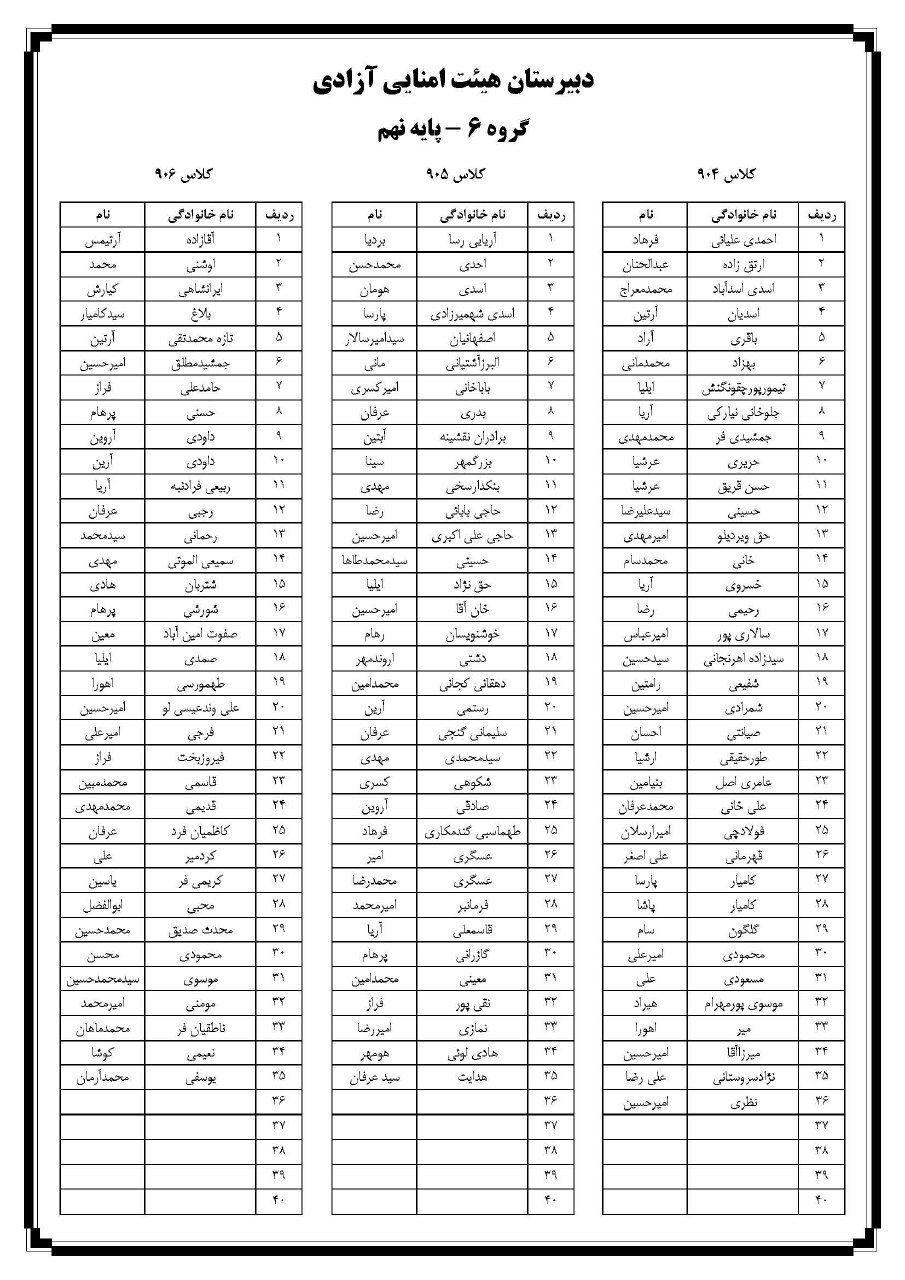 دبیرستان هیئت امنایی آزادی
گروه ۶ - پایه نهم
کلاس ۹۰۴
ردیف نام خانوادگی نام
۱ احمدی علیائی فرهاد
۲ ارتق زاده عبدالحنان
۳ اسدی اسدآباد محمدمعراج
۴ اسدیان آرتین
۵ باقری آراد
۶ بهزاد محمدمانی
۷ تیمورپورچقونگنش ایلیا
۸ جلوخانی نیارکی آریا
۹ جمشیدی فر محمدمهدی
۱۰ حریری عرشیا
۱۱ حسن قریق عرشیا
۱۲ حسینی سیدعلیرضا
۱۳ حق ویردیلو امیرمهدی
۱۴ خانی محمدسام
۱۵ خسروی آریا
۱۶ رحیمی رضا
۱۷ سالاری پور امیرعباس
۱۸ سیدزاده اهرنجانی سیدحسین
۱۹ شفیعی رامتین
۲۰ شمرادی امیرحسین
۲۱ صیانتی احسان
۲۲ طورحقیقی ارشیا
۲۳ عامری اصل بنیامین
۲۴ علی خانی محمدعرفان
۲۵ فولادچی امیرارسلان
۲۶ قهرمانی علی اصغر
۲۷ کامیار پارسا
۲۸ کامیار پاشا
۲۹ گلگون سام
۳۰ محمودی امیرعلی
۳۱ مسعودی علی
۳۲ موسوی پورمهرام هیراد
۳۳ میر اهورا
۳۴ میرزاآقا امیرحسین
۳۵ نژادسروستانی علی رضا
۳۶ نظری امیرحسین
۳۷
۳۸
۳۹
۴۰
کلاس ۹۰۵
ردیف نام خانوادگی نام
۱ آریایی رسا بردیا
۲ احدی محمدحسن
۳ اسدی هومان
۴ اسدی شهمیرزادی پارسا
۵ اصفهانیان سیدامیرسالار
۶ البرزآشتیانی مانی
۷ باباخانی امیرکسری
۸ بدری عرفان
۹ برادران نقشینه آبتین
۱۰ بزرگمهر سینا
۱۱ بنکدارسخی مهدی
۱۲ حاجی بابائی رضا
۱۳ حاجی علی اکبری امیرحسین
۱۴ حسینی سیدمحمدطاها
۱۵ حق نژاد ایلیا
۱۶ خان آقا امیرحسین
۱۷ خوشنویسان رهام
۱۸ دشتی اروندمهر
۱۹ دهقانی کجانی محمدامین
۲۰ رستمی آرین
۲۱ سلیمانی گنجی عرفان
۲۲ سیدمحمدی مهدی
۲۳ شکوهی کسری
۲۴ صادقی آروین
۲۵ طهماسبی گندمکاری فرهاد
۲۶ عسگری امیر
۲۷ عسگری محمدرضا
۲۸ فرمانبر امیرمحمد
۲۹ قاسمعلی آریا
۳۰ گازرانی پرهام
۳۱ معینی محمدامین
۳۲ نقی پور فراز
۳۳ نمازی امیررضا
۳۴ هادی لوئی هومهر
۳۵ هدایت سید عرفان
۳۶
۳۷
۳۸
۳۹
۴۰
کلاس ۹۰۶
ردیف نام خانوادگی نام
۱ آقازاده آرتیمس
۲ اوشنی محمد
۳ ایرانشاهی کیارش
۴ بلاغ سیدکامیار
۵ تازه محمدتقی آرتین
۶ جمشیدمطلق امیرحسین
۷ حامدعلی فراز
۸ حسنی پرهام
۹ داودی آروین
۱۰ داودی آرین
۱۱ ربیعی فرادنبه آریا
۱۲ رجبی عرفان
۱۳ رحمانی سیدمحمد
۱۴ سمیعی الموتی مهدی
۱۵ شتربان هادی
۱۶ شورشی پرهام
۱۷ صفوت امین آباد معین
۱۸ صمدی ایلیا
۱۹ طهمورسی اهورا
۲۰ علی وندعیسی لو امیرحسین
۲۱ فرجی امیرعلی
۲۲ فیروزبخت فراز
۲۳ قاسمی محمدمبین
۲۴ قدیمی محمدمهدی
۲۵ کاظمیان فرد عرفان
۲۶ کردمیر علی
۲۷ کریمی فر یاسین
۲۸ محبی ابوالفضل
۲۹ محدث صدیق محمدحسین
۳۰ محمودی محسن
۳۱ موسوی سیدمحمدحسین
۳۲ مومنی امیرمحمد
۳۳ ناطقیان فر محمدماهان
۳۴ نعیمی کوشا
۳۵ یوسفی محمدآرمان
۳۶
۳۷
۳۸
۳۹
۴۰